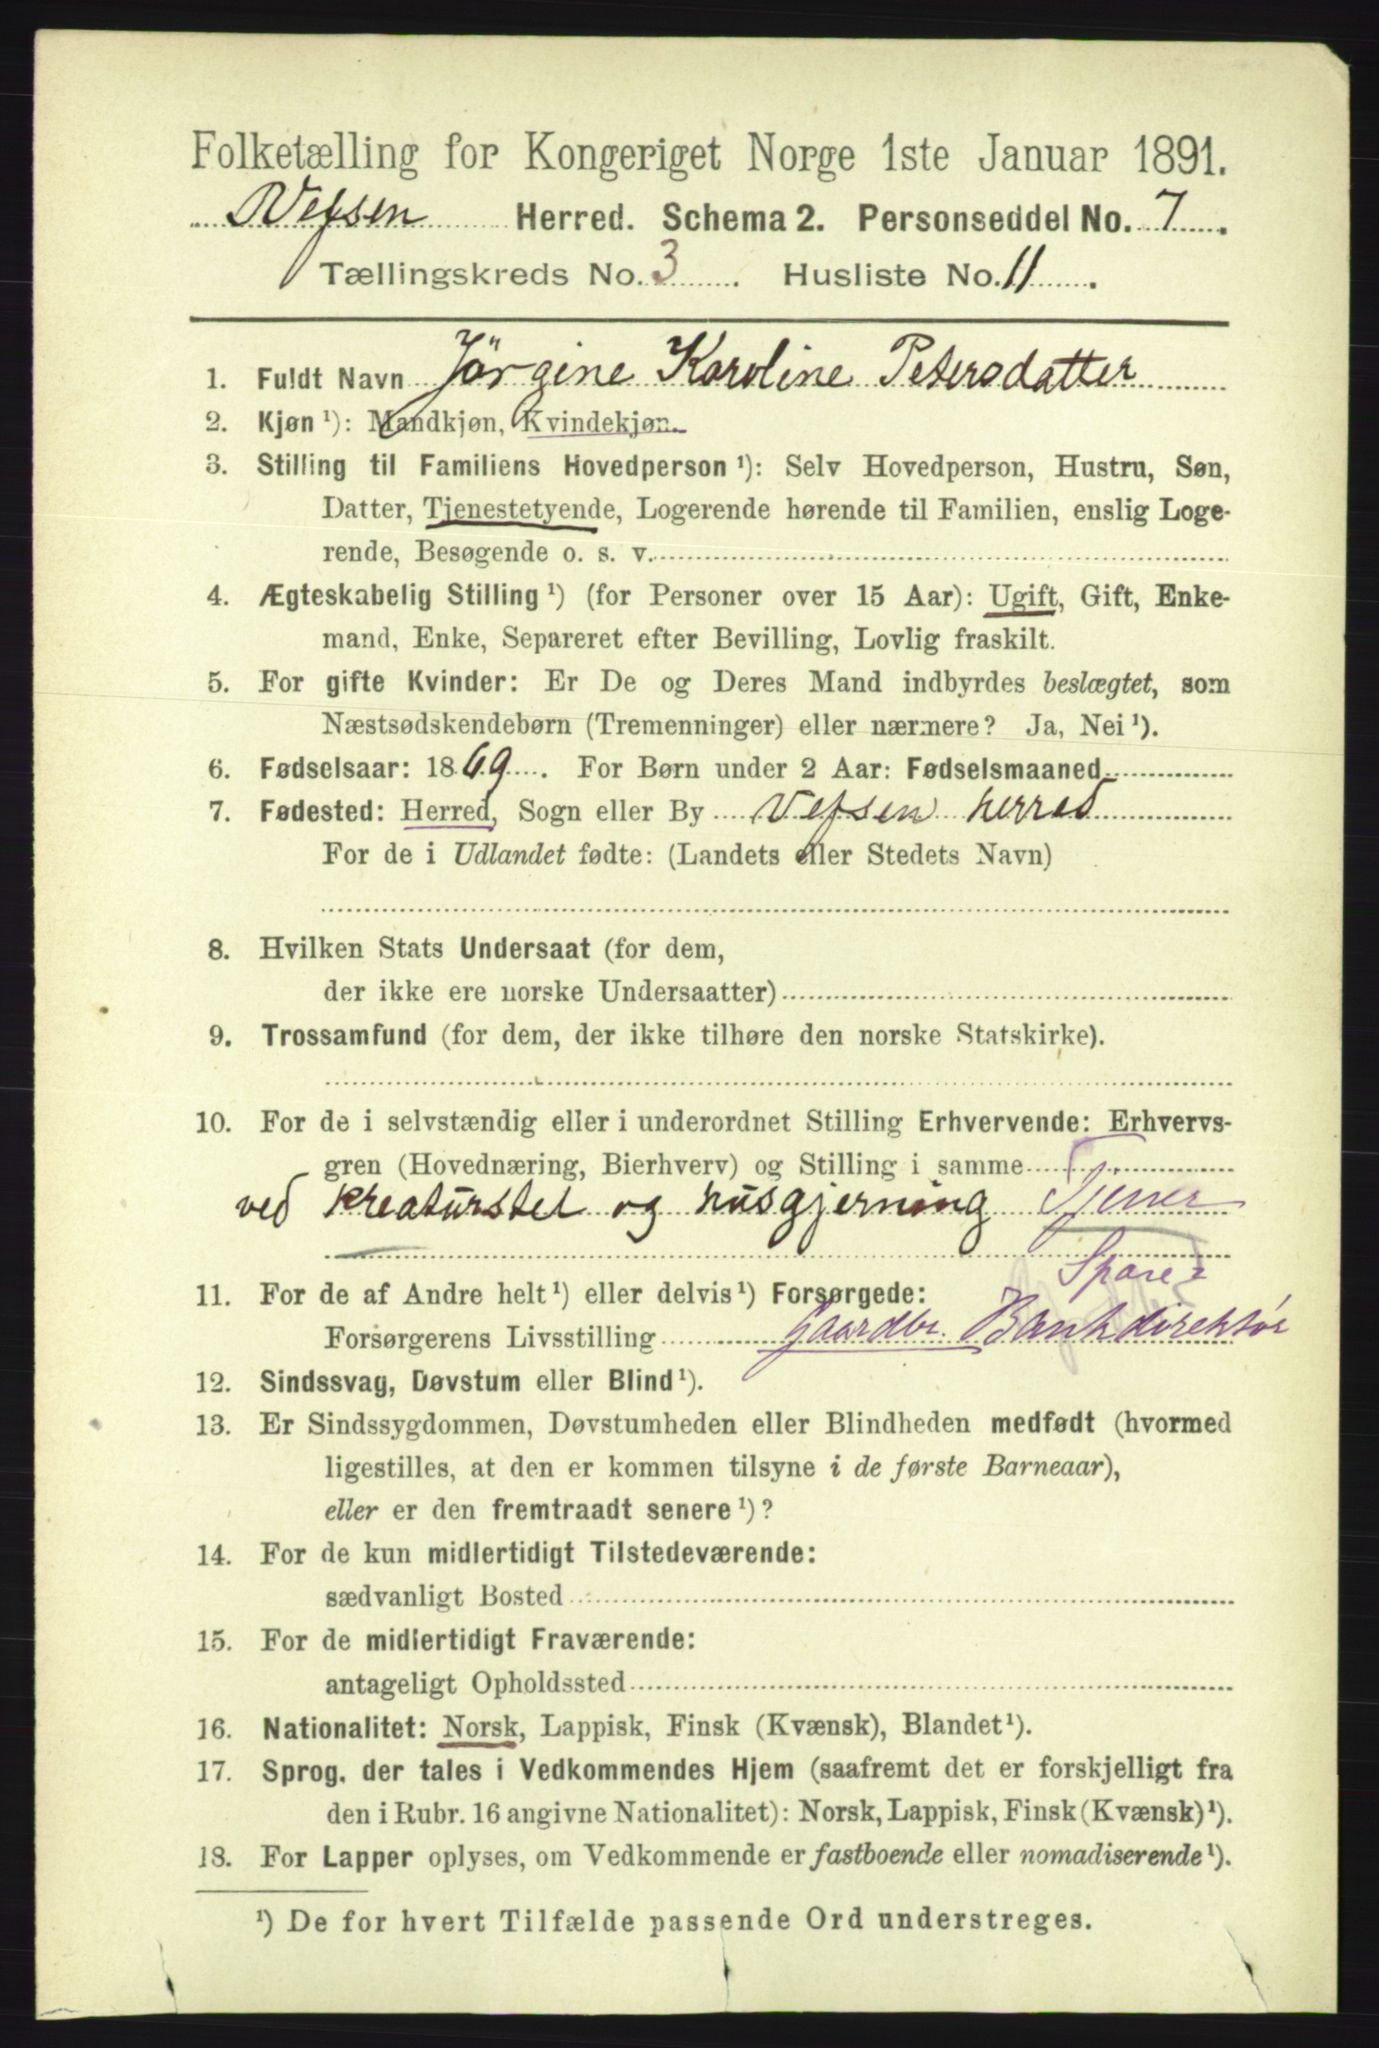 Folketælling for Kongeriget Norge 1ste Januar 1891.
Vefsen Herred. Schema 2. Personseddel No. 7.
Tællingskreds No. 3. Husliste No. 11.
1. Fuldt Navn Jörgine Karoline Petersdatter
2. Kjøn ¹): Mandkjøn, Kvindekjøn.
3. Stilling til Familiens Hovedperson ¹): Selv Hovedperson, Hustru, Søn,
Datter, Tjenestetyende, Logerende hørende til Familien, enslig Loge-
rende, Besøgende o. s. v.
4. Ægteskabelig Stilling ¹) (for Personer over 15 Aar): Ugift, Gift, Enke-
mand, Enke, Separeret efter Bevilling, Lovlig fraskilt.
5. For gifte Kvinder: Er De og Deres Mand indbyrdes beslægtet, som
Næstsødskendebørn (Tremenninger) eller nærmere? Ja, Nei ¹).
6. Fødselsaar: 1869. For Børn under 2 Aar: Fødselsmaaned
7. Fødested: Herred, Sogn eller By Vefsen herred
For de i Udlandet fødte: (Landets eller Stedets Navn)
8. Hvilken Stats Undersaat (for dem,
der ikke ere norske Undersaatter)
9. Trossamfund (for dem, der ikke tilhøre den norske Statskirke).
10. For de i selvstændig eller i underordnet Stilling Erhvervende: Erhvervs-
gren (Hovednæring, Bierhverv) og Stilling i samme
ved kreaturstel og husgjerning Tjener
Spare-
11. For de af Andre helt ¹) eller delvis ¹) Forsørgede:
Forsørgerens Livsstilling Gaardbr. Bankdirektør
12. Sindssvag, Døvstum eller Blind ¹).
13. Er Sindssygdommen, Døvstumheden eller Blindheden medfødt (hvormed
ligestilles, at den er kommen tilsyne i de første Barneaar),
eller er den fremtraadt senere ¹)?
14. For de kun midlertidigt Tilstedeværende:
sædvanligt Bosted
15. For de midlertidigt Fraværende:
antageligt Opholdssted
16. Nationalitet: Norsk, Lappisk, Finsk (Kvænsk), Blandet ¹).
17. Sprog, der tales i Vedkommendes Hjem (saafremt det er forskjelligt fra
den i Rubr. 16 angivne Nationalitet): Norsk, Lappisk, Finsk (Kvænsk) ¹).
18. For Lapper oplyses, om Vedkommende er fastboende eller nomadiserende ¹).
¹) De for hvert Tilfælde passende Ord understreges.